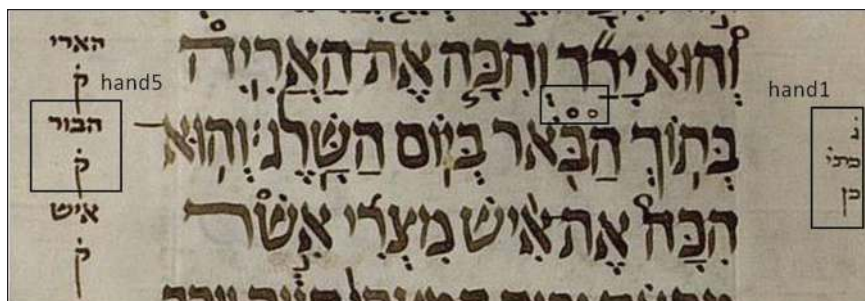 הארי
ק
hand5
הבור
ק
איש
ק
וְהוּא יָרַד וְהִכָּה אֶת הָאֲרִיה
בְּתוֹךְ הַבֹּאר בְּיוֹם הַשָּׁלֶג׃ וְהוּא
הִכָּה אֶת אִישׁ מִצְרִי אֲשֶׁר
hand1
ג
כתי
כן